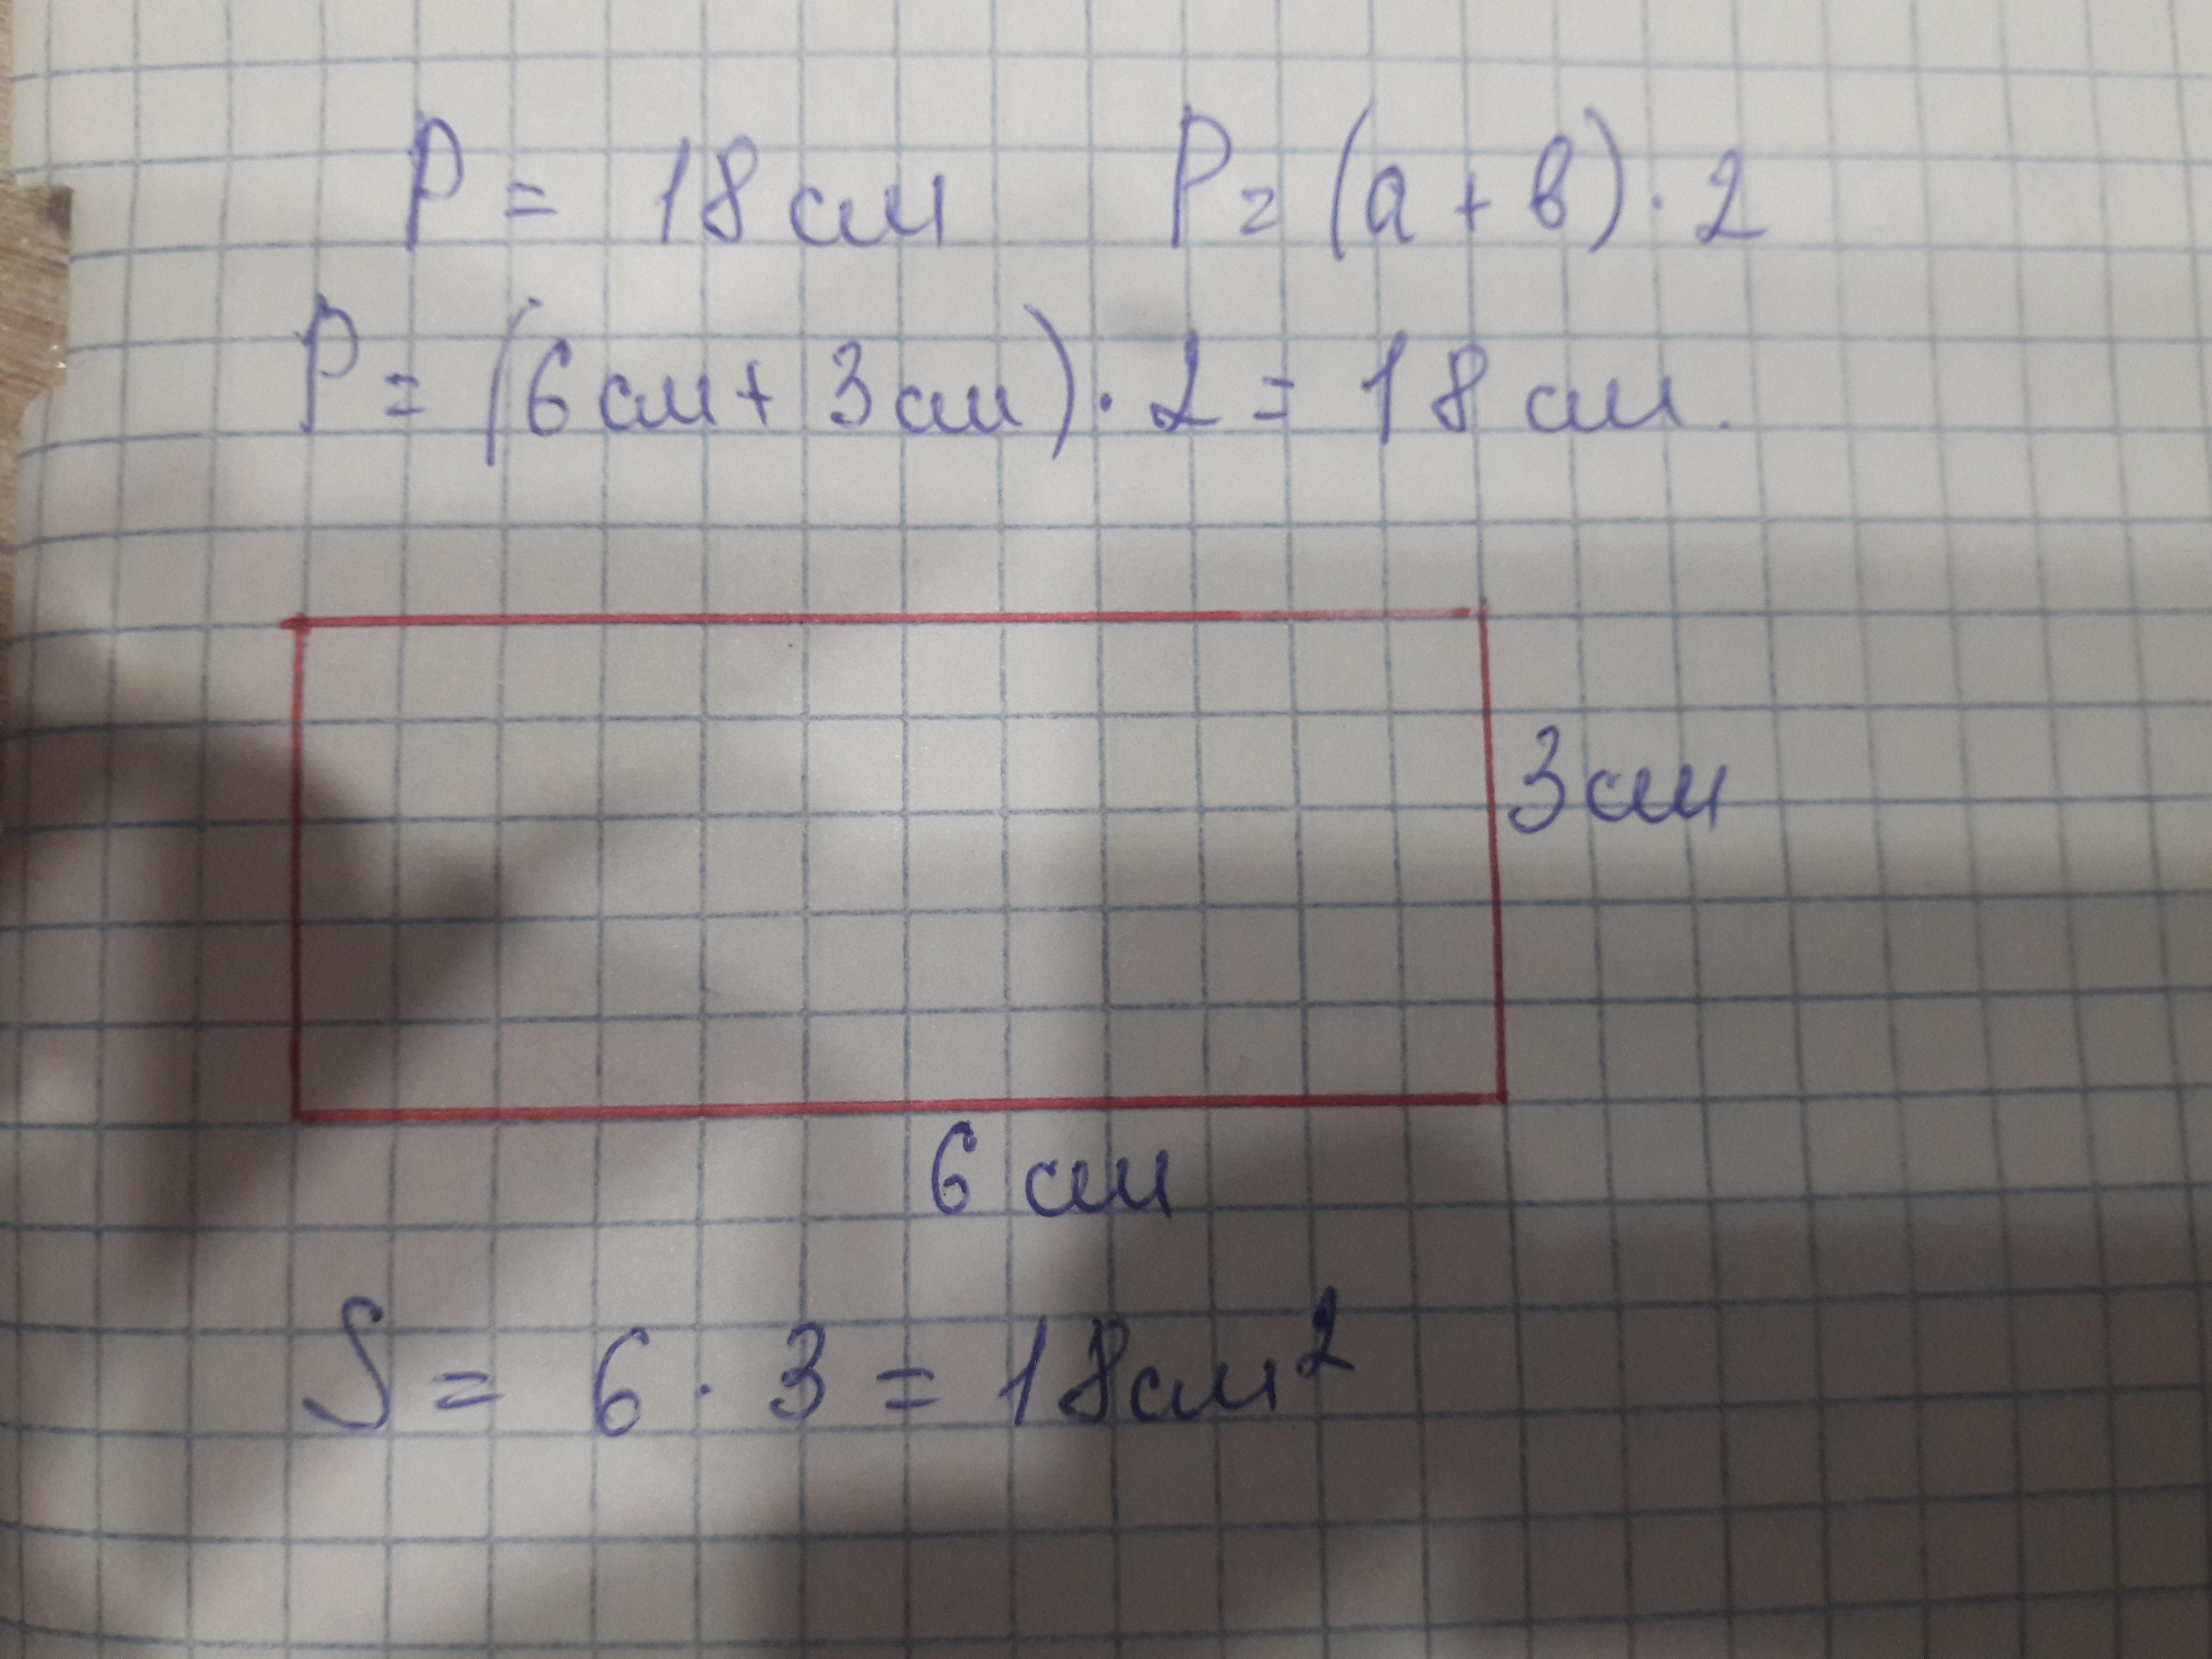 P = 18 см P = (а + в) · 2
P = (6 см + 3 см) · 2 = 18 см.
3 см
6 см
S = 6 · 3 = 18 см²